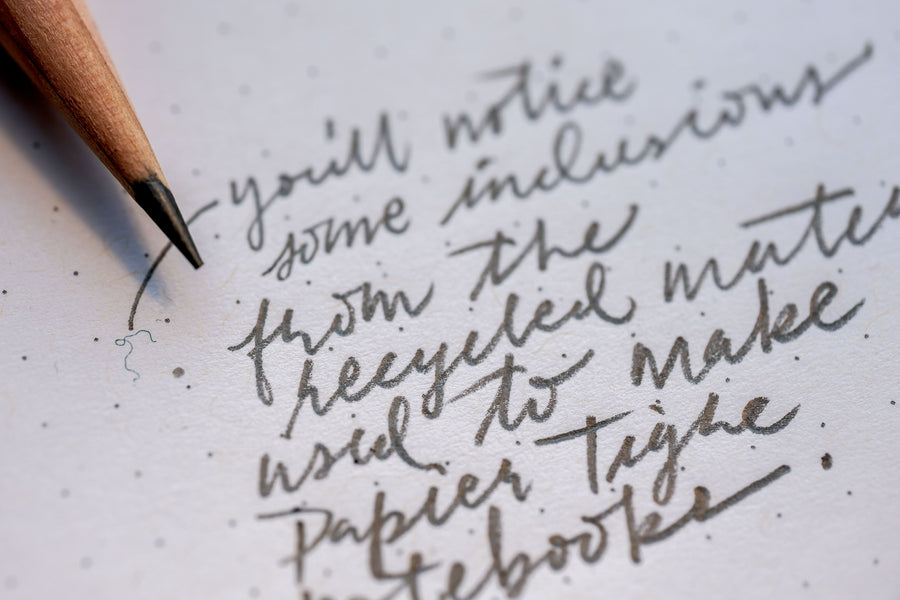 you'll notice
some inclusions
from the
recycled mate
used to make
Papier Tigre
notebooks